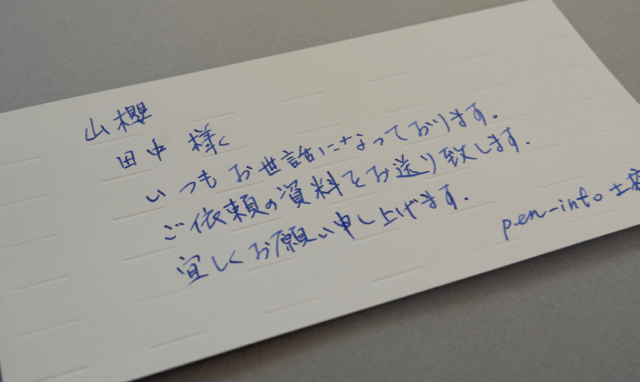 山櫻
田中 様
いつもお世話になっております。
ご依頼の資料をお送り致します。
宜しくお願い申し上げます。
pen-info 土橋